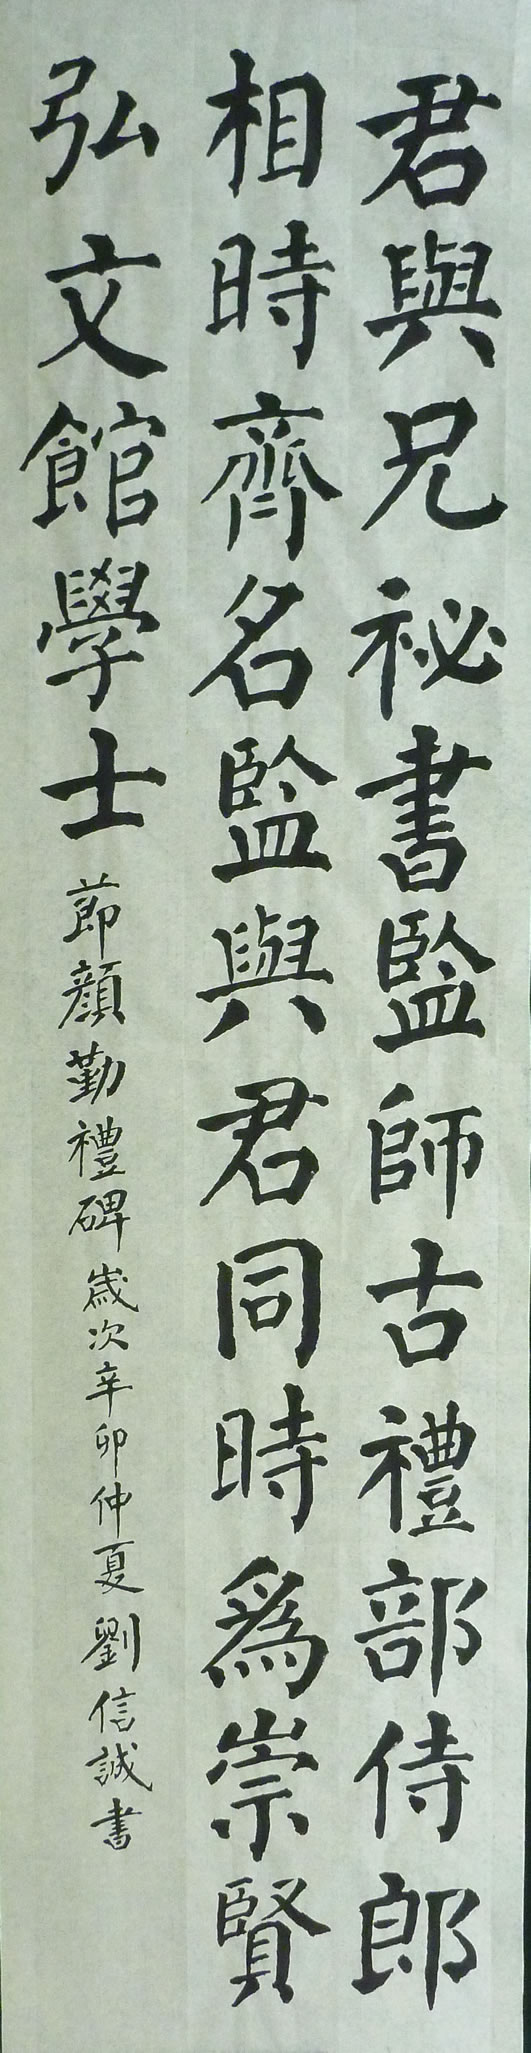 君與兄祕書監師古禮部侍郎
相時齊名監與君同時爲崇賢
弘文館學士
節顏勤禮碑歲次辛卯仲夏劉信誠書